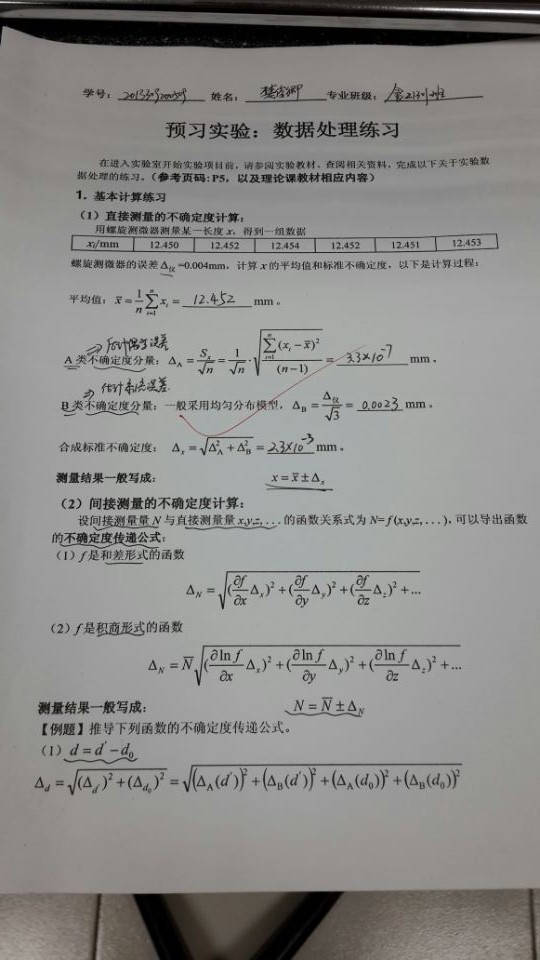 学号: 姓名: 专业班级:
预习实验：数据处理练习
在进入实验室开始实验项目前，请参阅实验教材、查阅相关资料，完成以下关于实验数
据处理的练习。（参考页码: P5，以及理论课教材相应内容）
1. 基本计算练习
（1）直接测量的不确定度计算：
用螺旋测微器测量某一长度 x，得到一组数据
xᵢ/mm 12.450 12.452 12.454 12.452 12.451 12.453
螺旋测微器的误差 Δ仪=0.004mm，计算 x 的平均值和标准不确定度，以下是计算过程：
平均值: x̄ = 1/n ∑ᵢ₌₁ⁿ xᵢ = 12.452 mm。
⇒估计偶然误差
A 类不确定度分量: Δ_A = Sₓ/√n = 1/√n · √(∑ᵢ₌₁ⁿ(xᵢ − x̄)²/(n−1)) = 3.3×10⁻⁷ mm。
⇒估计系统误差
B 类不确定度分量: 一般采用均匀分布模型，Δ_B = Δ仪/√3 = 0.0023 mm。
合成标准不确定度: Δₓ = √(Δ_A² + Δ_B²) = 2.3×10⁻³ mm。
测量结果一般写成: x = x̄ ± Δₓ
（2）间接测量的不确定度计算：
设间接测量量 N 与直接测量量 x,y,z, ... 的函数关系式为 N= f (x,y,z, ...), 可以导出函数
的不确定度传递公式：
（1）f 是和差形式的函数
Δ_N = √((∂f/∂x Δₓ)² + (∂f/∂y Δ_y)² + (∂f/∂z Δ_z)² + ...)
（2）f 是积商形式的函数
Δ_N = N̄ √((∂ln f/∂x Δₓ)² + (∂ln f/∂y Δ_y)² + (∂ln f/∂z Δ_z)² + ...)
测量结果一般写成: N = N̄ ± Δ_N
【例题】推导下列函数的不确定度传递公式。
（1）d = d′ − d₀
Δ_d = √((Δ_d′)² + (Δ_d₀)²) = √((Δ_A(d′))² + (Δ_B(d′))² + (Δ_A(d₀))² + (Δ_B(d₀))²)